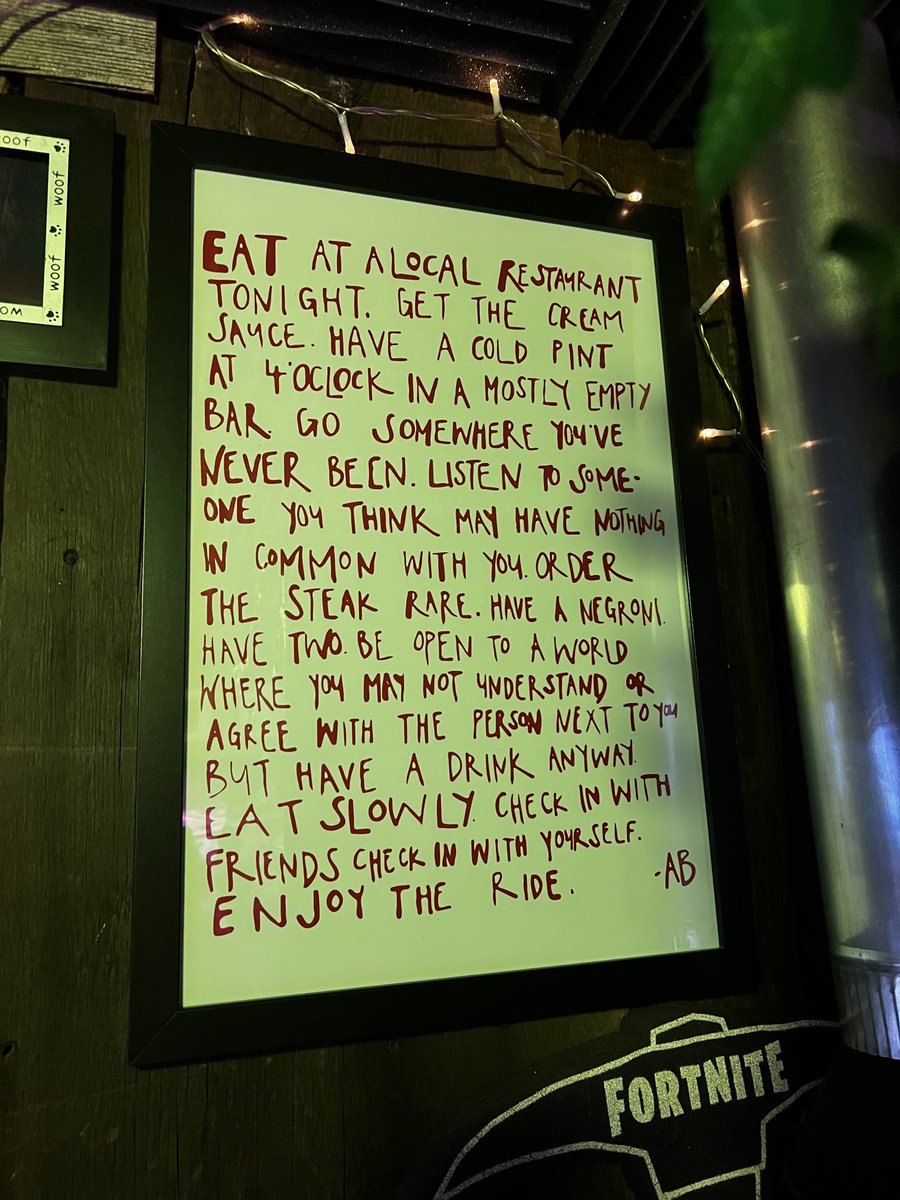 woof
woof
woof
MOM
EAT AT A LOCAL RESTAURANT
TONIGHT. GET THE CREAM
SAUCE. HAVE A COLD PINT
AT 4'OCLOCK IN A MOSTLY EMPTY
BAR. GO SOMEWHERE YOU'VE
NEVER BEEN. LISTEN TO SOME-
ONE YOU THINK MAY HAVE NOTHING
IN COMMON WITH YOU. ORDER
THE STEAK RARE. HAVE A NEGRONI.
HAVE TWO. BE OPEN TO A WORLD
WHERE YOU MAY NOT UNDERSTAND OR
AGREE WITH THE PERSON NEXT TO YOU
BUT HAVE A DRINK ANYWAY.
EAT SLOWLY. CHECK IN WITH
FRIENDS CHECK IN WITH YOURSELF.
ENJOY THE RIDE. -AB
FORTNITE